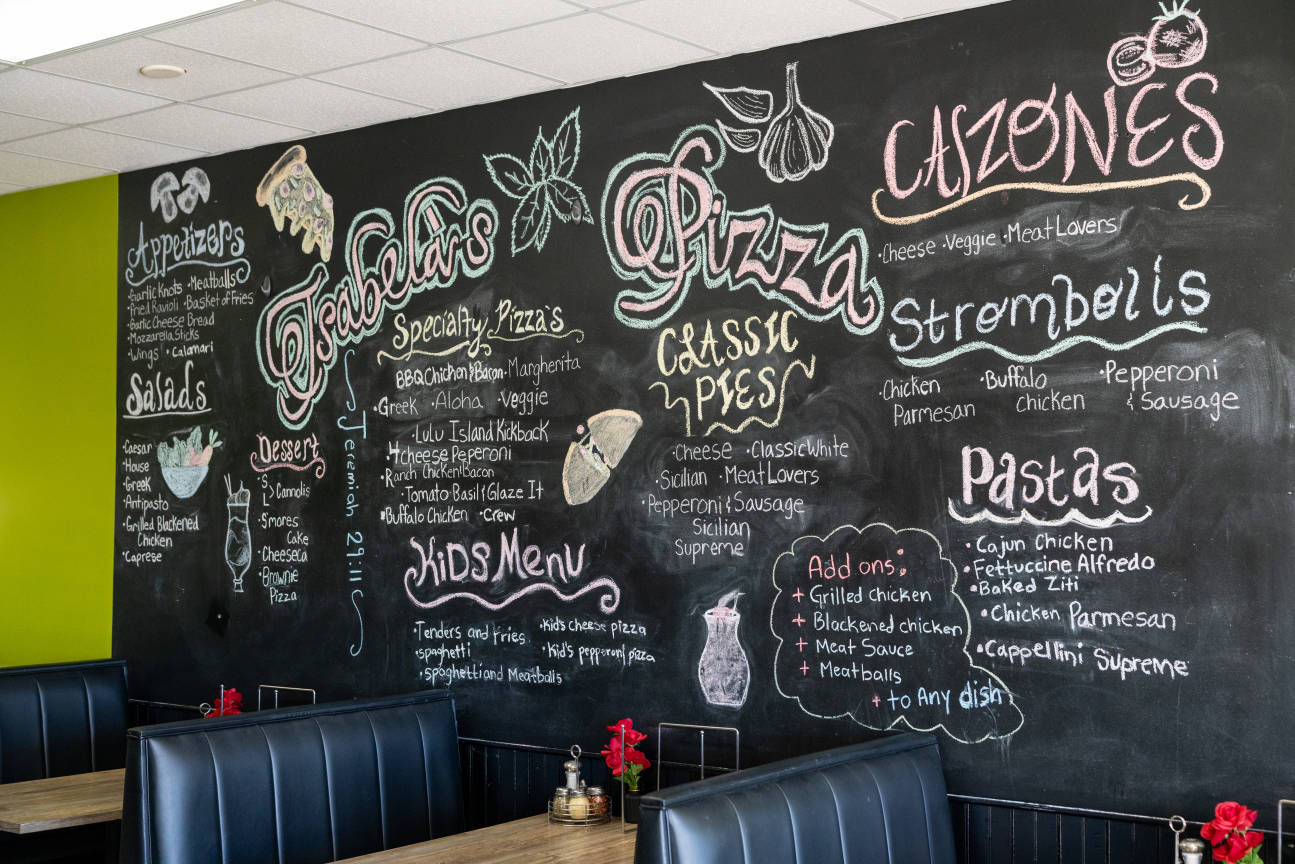 Appetizers
•Garlic Knots •Meatballs
•Fried Ravioli •Basket of Fries
•Garlic Cheese Bread
•Mozzarella Sticks
•Wings •Calamari
Salads
•Caesar
•House
•Greek
•Antipasto
•Grilled Blackened
Chicken
•Caprese
Dessert
S
L > Cannolis
•S'mores
Cake
•Cheeseca
•Brownie
Pizza
Isabela's
Pizza
Jeremiah 29:11
Specialty Pizza's
BBQ Chicken & Bacon •Margherita
•Greek •Aloha •Veggie
•Lulu Island Kickback
•4 cheese Peperoni
•Ranch Chicken Bacon
•Tomato Basil & Glaze It
•Buffalo Chicken •Crew
Kids Menu
•Tenders and fries •Kid's cheese pizza
•spaghetti •Kid's pepperoni pizza
•spaghetti and Meatballs
CLASSIC
PIES
•Cheese •Classic White
•Sicilian •Meat Lovers
•Pepperoni & Sausage
Sicilian
Supreme
Add ons:
+ Grilled chicken
+ Blackened chicken
+ Meat Sauce
+ Meatballs
+ to Any dish
CALZONES
•Cheese •Veggie •Meat Lovers
Strombolis
•Chicken
Parmesan
•Buffalo
chicken
•Pepperoni
& Sausage
Pastas
•Cajun Chicken
•Fettuccine Alfredo
•Baked Ziti
•Chicken Parmesan
•Cappellini Supreme